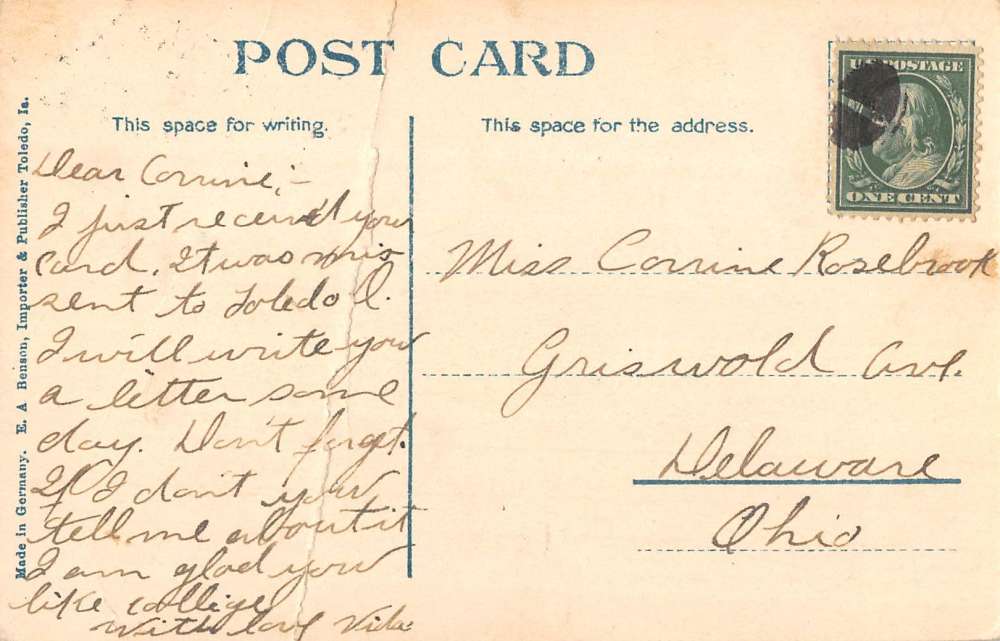 POST CARD
This space for writing.
This space for the address.
U.S. POSTAGE
ONE CENT
Made in Germany. E. A Benson, Importer & Publisher Toledo, Ia.
Dear Corrine;-
I just receiv'd your
card. It was mis
sent to Toledo O.
I will write you
a letter some
day. Don't forget.
If I don't your
tell me about it
I am glad you
like collige
With love Vida
Miss Corrine Rosebrook
Griswold Ave.
Delaware
Ohio